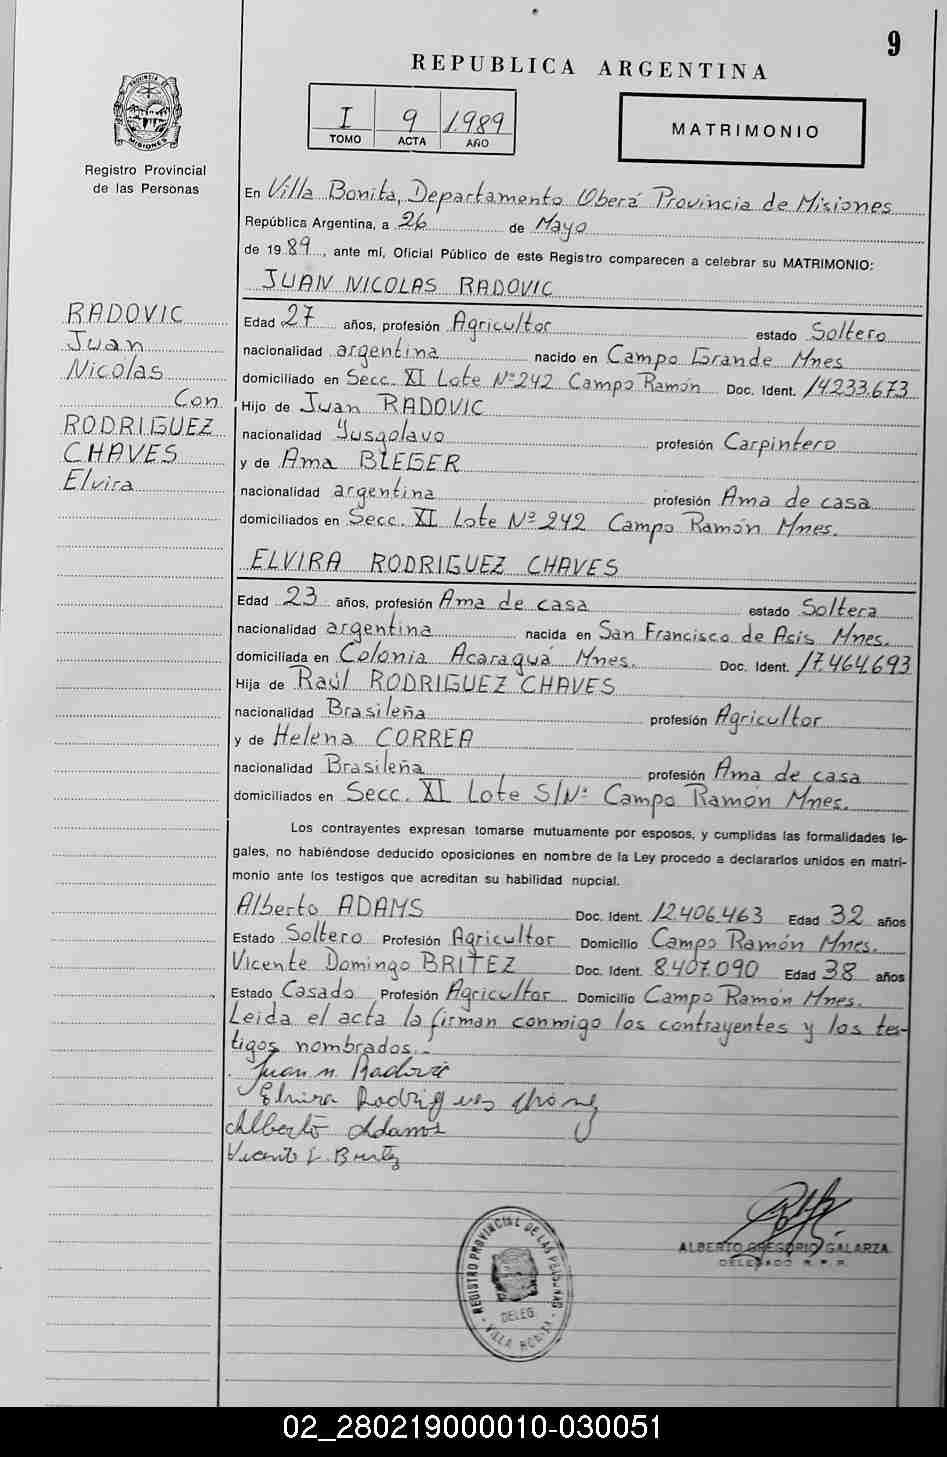 9
REPUBLICA ARGENTINA
PROVINCIA DE MISIONES
Registro Provincial
de las Personas
I 9 1.989
TOMO ACTA AÑO
MATRIMONIO
En Villa Bonita, Departamento Oberá Provincia de Misiones
República Argentina, a 26 de Mayo
de 1989, ante mí, Oficial Público de este Registro comparecen a celebrar su MATRIMONIO:
JUAN NICOLAS RADOVIC
RADOVIC
Juan
Nicolas
Con
RODRIGUEZ
CHAVES
Elvira
Edad 27 años, profesión Agricultor estado Soltero
nacionalidad argentina nacido en Campo Grande Mnes
domiciliado en Secc. XI Lote Nº 242 Campo Ramón Doc. Ident. 14.233.673
Hijo de Juan RADOVIC
nacionalidad Yusgolavo profesión Carpintero
y de Ama BLEGER
nacionalidad argentina profesión Ama de casa
domiciliados en Secc. XI Lote Nº 242 Campo Ramón Mnes.
ELVIRA RODRIGUEZ CHAVES
Edad 23 años, profesión Ama de casa estado Soltera
nacionalidad argentina nacida en San Francisco de Asis Mnes.
domiciliada en Colonia Acaraguá Mnes. Doc. Ident. 17.464.693
Hija de Raúl RODRIGUEZ CHAVES
nacionalidad Brasileña profesión Agricultor
y de Helena CORREA
nacionalidad Brasileña profesión Ama de casa
domiciliados en Secc. XI Lote S/Nº Campo Ramón Mnes.
Los contrayentes expresan tomarse mutuamente por esposos, y cumplidas las formalidades le-
gales, no habiéndose deducido oposiciones en nombre de la Ley procedo a declararlos unidos en matri-
monio ante los testigos que acreditan su habilidad nupcial.
Alberto ADAMS Doc. Ident. 12.406.463 Edad 32 años
Estado Soltero Profesión Agricultor Domicilio Campo Ramón Mnes.
Vicente Domingo BRITEZ Doc. Ident. 8.407.090 Edad 38 años
Estado Casado Profesión Agricultor Domicilio Campo Ramón Mnes.
Leida el acta la firman conmigo los contrayentes y los tes-
tigos nombrados.-
Juan N. Radovic
Elvira Rodrigues
Alberto Adams
Vicente Britez
REGISTRO PROVINCIAL DE LAS PERSONAS
DELEG.
VILLA BONITA
ALBERTO GREGORIO GALARZA
DELEGADO R. P. P.
02_280219000010-030051